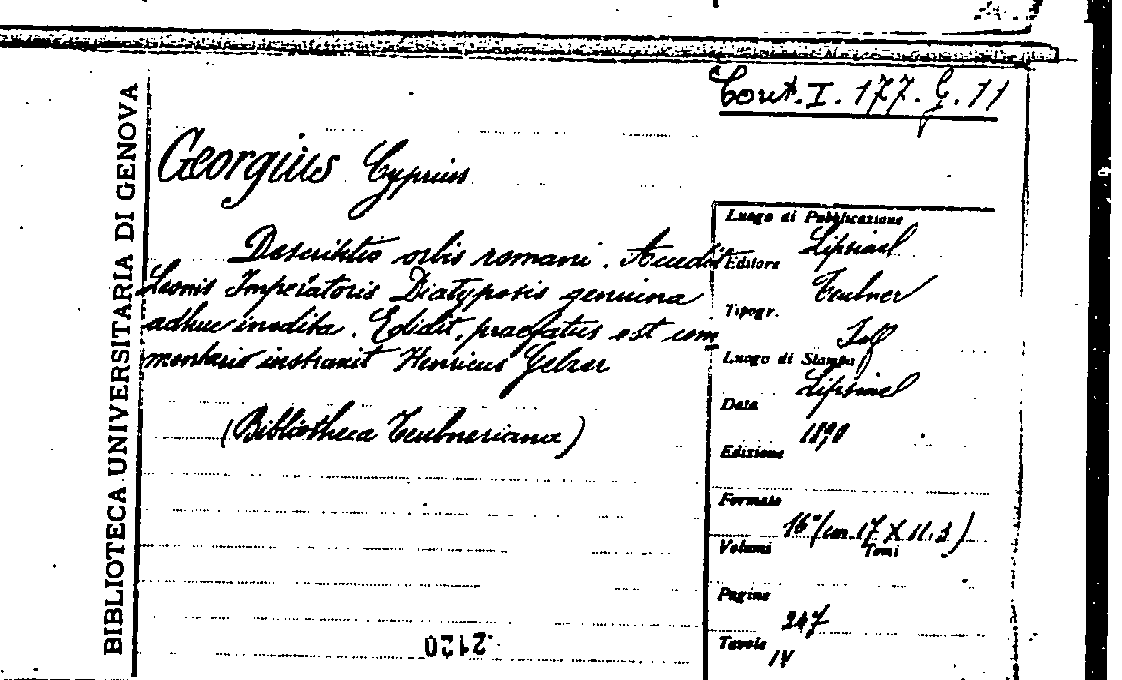 Cont. I. 177. G. 11
BIBLIOTECA UNIVERSITARIA DI GENOVA
Georgius Cyprius
Descriptio orbis romani. Accedit
Leonis Imperatoris Diatyposis genuina
adhuc inedita. Edidit, praefatus est com
mentario instruxit Henricus Gelzer
(Bibliotheca Teubneriana)
2120
Luogo di Pubblicazione
Lipsiael
Editore
Teubner
Tipogr.
Luogo di Stampa
Lipsiael
Data
1890
Edizione
Formato
16° (cm. 17 X 11.3)
Volumi Tomi
Pagine
247
Tavole
IV